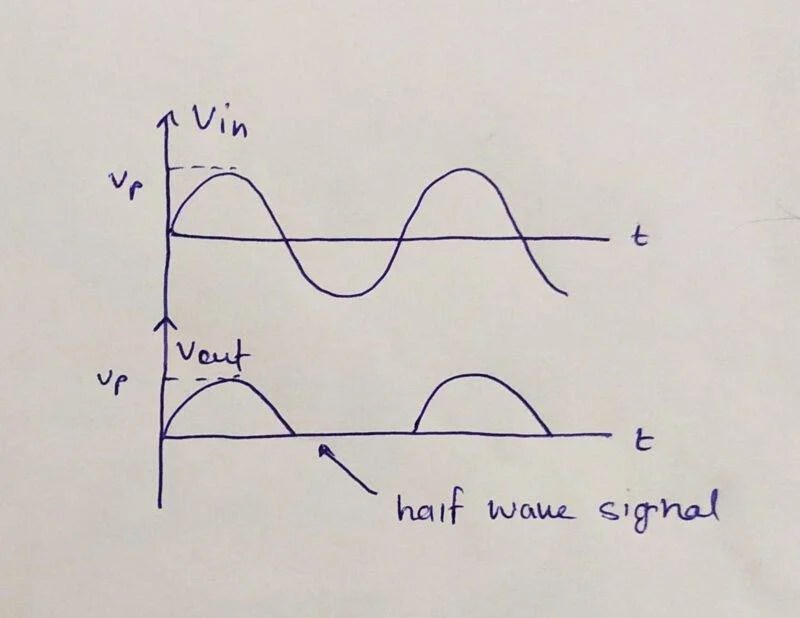 Vin
Vp
t
Vout
Vp
t
half wave signal